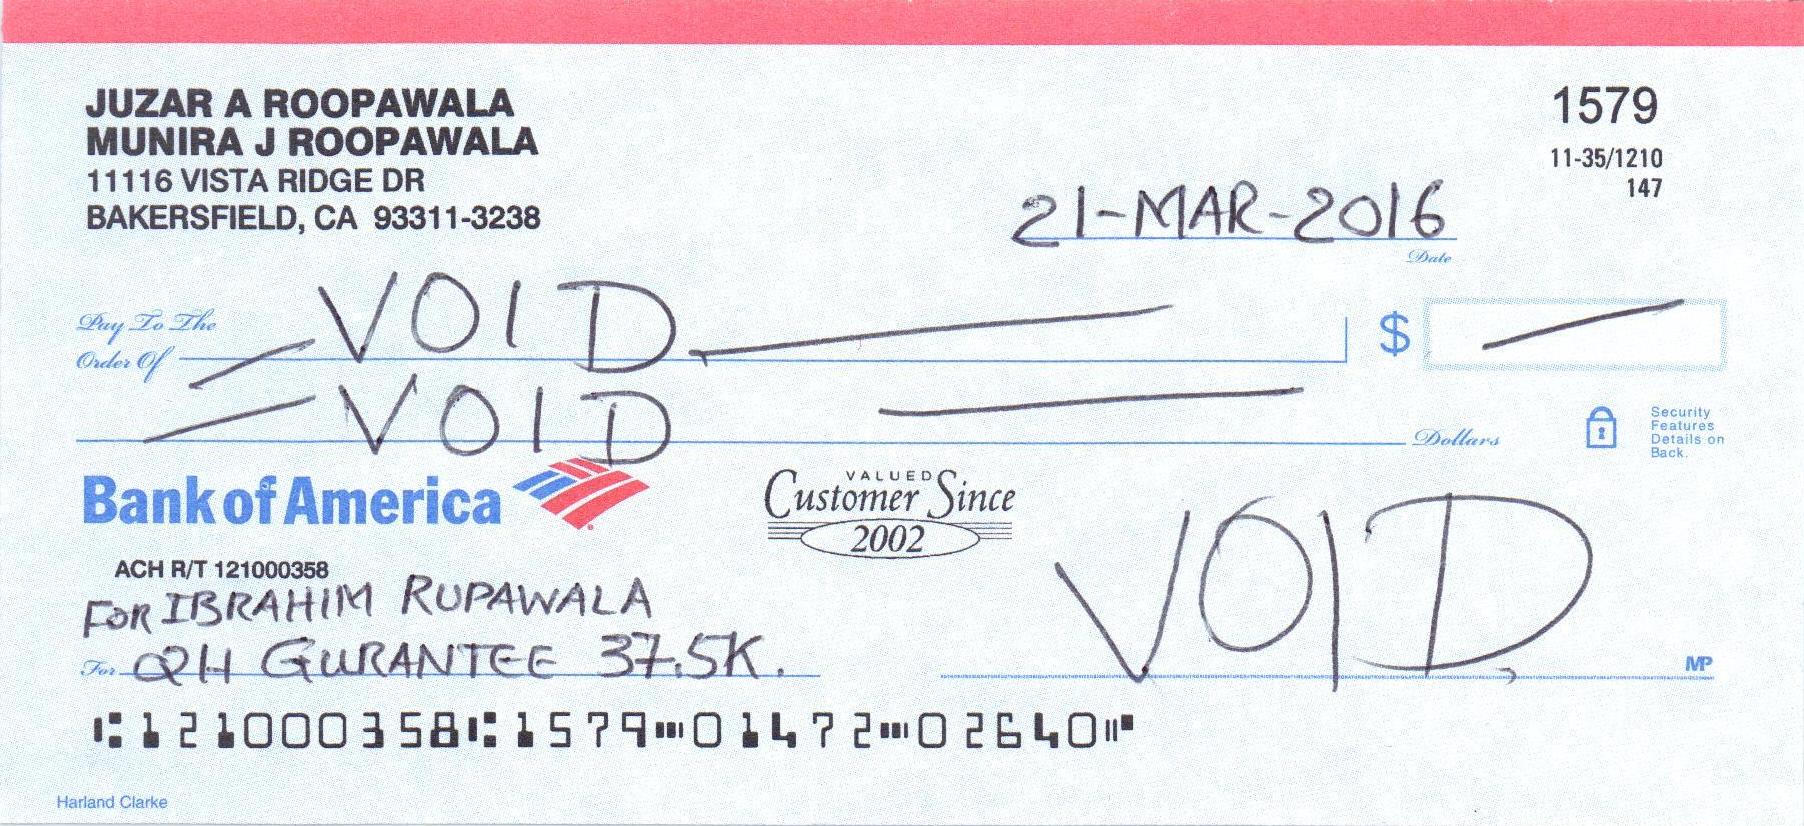 JUZAR A ROOPAWALA
MUNIRA J ROOPAWALA
11116 VISTA RIDGE DR
BAKERSFIELD, CA 93311-3238
1579
11-35/1210
147
21-MAR-2016
Date
Pay To The
Order Of
VOID
$
VOID
Dollars
Security
Features
Details on
Back.
Bank of America
VALUED
Customer Since
2002
ACH R/T 121000358
FOR IBRAHIM RUPAWALA
For QH GURANTEE 37.5K.
VOID
MP
⑆121000358⑆1579⑉01472⑉02640⑈
Harland Clarke